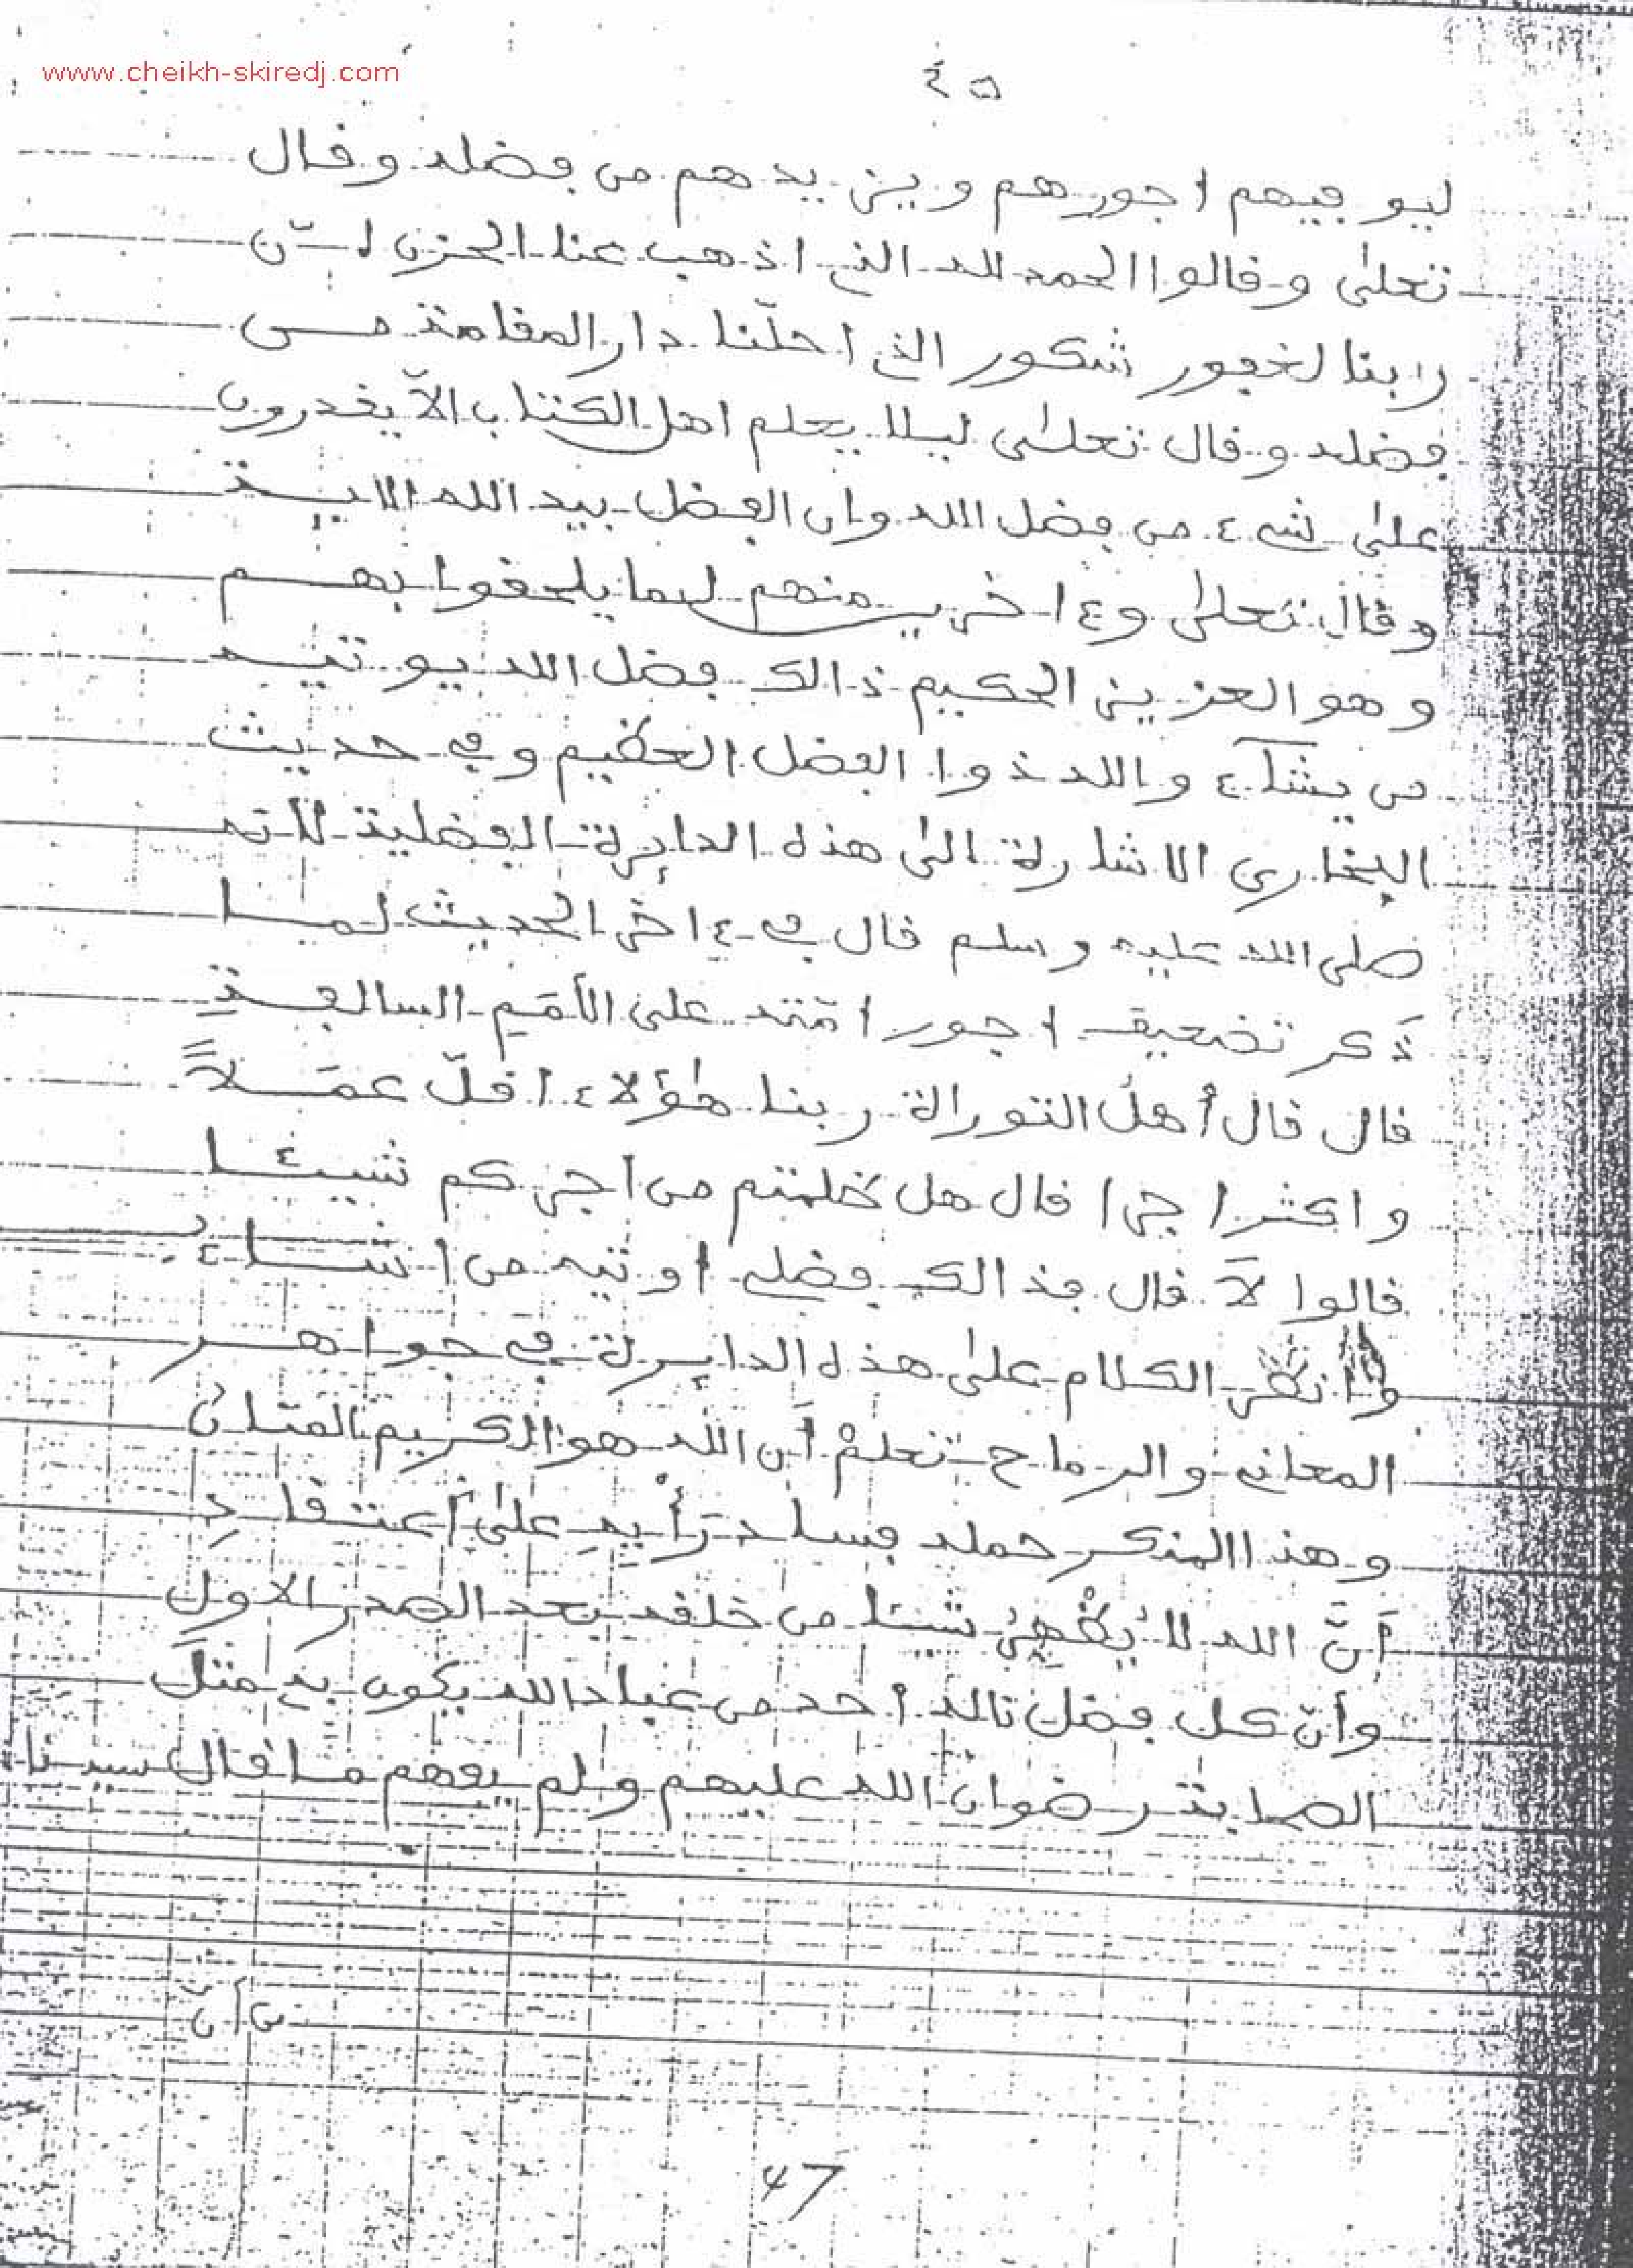 www.cheikh-skiredj.com
٤٥
ليوفيهم اجورهم ويزيدهم من فضله وقال
تعلى وقالوا الحمد لله الذي اذهب عنا الحزن انّ
ربنا لغفور شكور الذي احلّنا دار المقامة مـن
فضله وقال تعلى ليلا يعلم اهل الكتاب الاّ يقدرون
على شيء من فضل الله وان الفضل بيد الله الايـة
وقال تعلى وءاخرين منهم لما يلحقوا بهـم
وهو العزيز الحكيم ذالك فضل الله يوتيـه
من يشآء والله ذوا الفضل العظيم وفي حديث
البخاري الاشارة الى هذه الدايرة الفضلية لأنه
صلى الله عليه وسلم قال في ءاخر الحديث لمـا
ذَكر تضعيف اجور امّته على الأمَمِ السالفـةِ
قال قال أهلُ التوراة ربنا هٰؤلاء اقلّ عمَـلاً
واكثر اجرا قال هل ظلمتم من اجركم شيئـا
قالوا لاَ قال فذالك فضلي اوتيه من اشـاء
وانظر الكلام على هذه الدايرة في جواهـر
المعاني والرماح تعلمْ أن الله هو الكريم المنان
وهذا المنكر حمله فساد رَأْيِهِ على اعتقادِ
أنّ الله لا يُظْهِرُ شيئا من خلقه بعد الصدر الاول
وأن كل فضل ناله أحد من عباد الله يكون به مثلَ
الصحابة رضوان الله عليهم ولم يفهم ما قال سيدنا
من أن
47